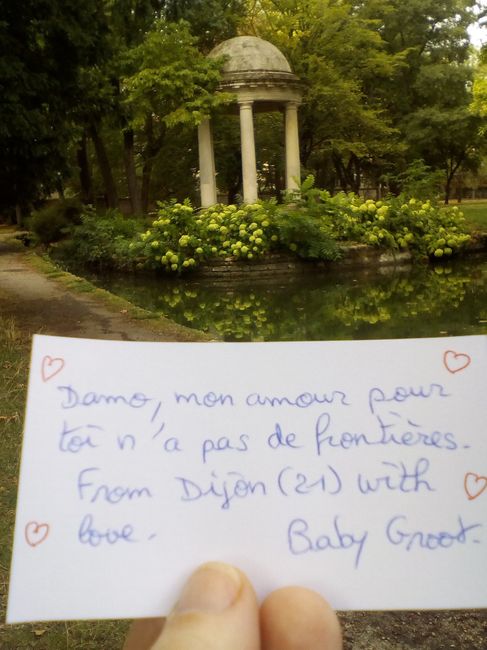 Damo, mon amour pour
toi n'a pas de frontières.
From Dijon (21) with
love. Baby Groot.